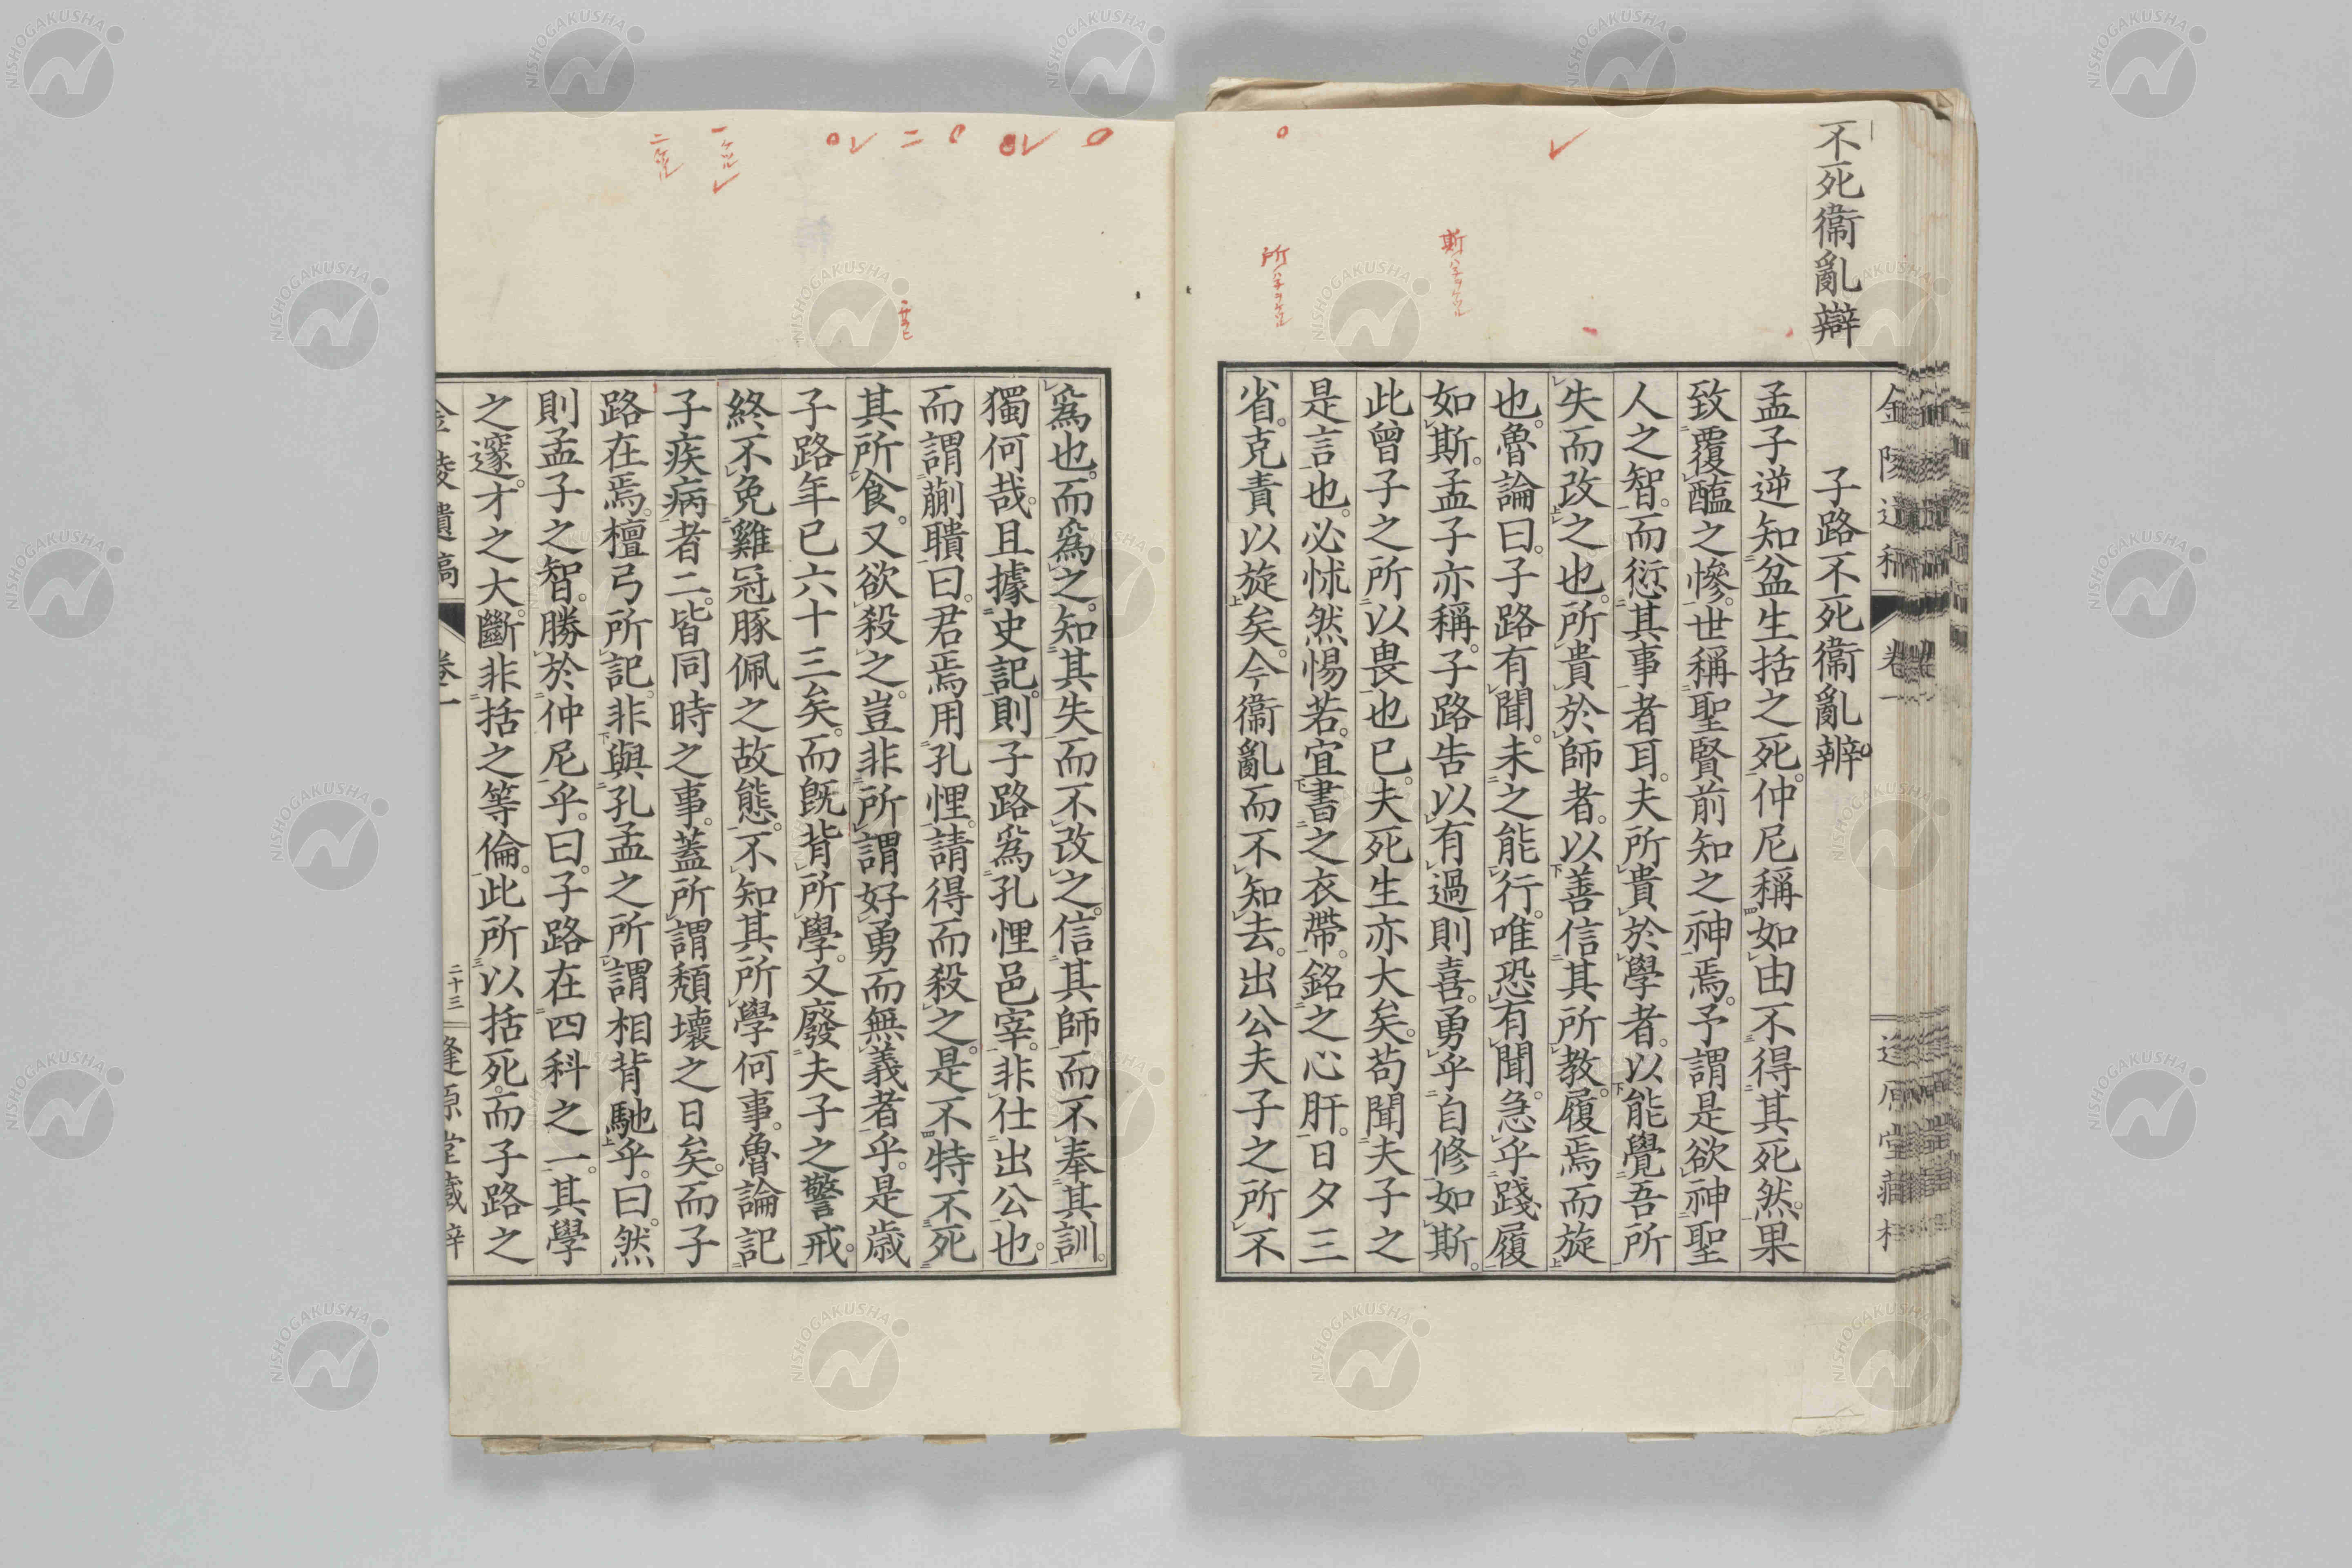 不死衞亂辯
子路不死衞亂辨
孟子逆知盆生括之死。仲尼稱如由不得其死然。果
致覆醢之慘。世稱聖賢前知之神焉。予謂是欲神聖
人之智。而衍其事者耳。夫所貴於學者。以能覺吾所
失而改之也。所貴於師者。以善信其所教履焉而旋
也。魯論曰。子路有聞。未之能行。唯恐有聞。急乎踐履
如斯。孟子亦稱。子路告以有過則喜。勇乎自修如斯。
此曾子之所以畏也已。夫死生亦大矣。苟聞夫子之
是言也。必怵然惕若。宜書之衣帶。銘之心肝。日夕三
省。克責以旋矣。今衞亂而不知去。出公夫子之所不
爲也。而爲之。知其失而不改之。信其師而不奉其訓。
獨何哉。且據史記。則子路爲孔悝邑宰。非仕出公也。
而謂蒯聵曰。君焉用孔悝。請得而殺之。是不特不死
其所食。又欲殺之。豈非所謂好勇而無義者乎。是歲
子路年已六十三矣。而既背所學。又廢夫子之警戒。
終不免雞冠豚佩之故態。不知其所學何事。魯論記
子疾病者二。皆同時之事。蓋所謂頹壞之日矣。而子
路在焉。檀弓所記。非與孔孟之所謂相背馳乎。曰。然
則孟子之智。勝於仲尼乎。曰。子路在四科之一。其學
之邃。才之大。斷非括之等倫。此所以括死。而子路之
卷一
二十三
NISHOGAKUSHA